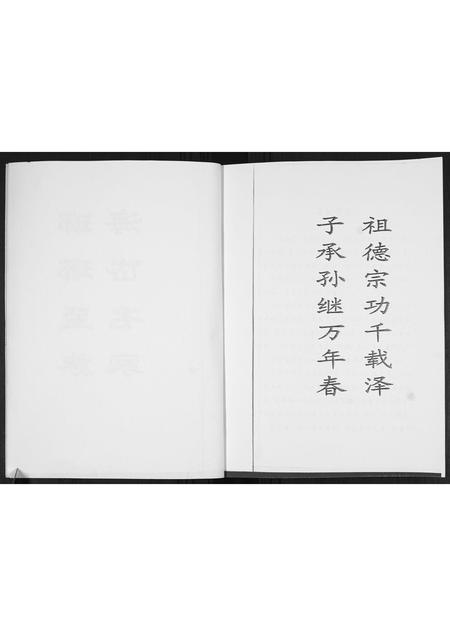 祖德宗功千载泽
子承孙继万年春